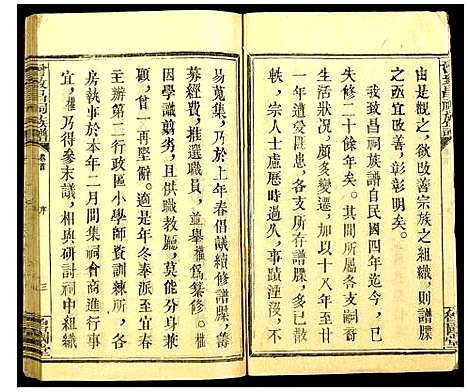 曾致昌祠族譜
由是觀之，欲改善宗族之組織，則譜牒
之亟宜改善，彰彰明矣。
我致昌祠族譜自民國四年續修，迄今
失修二十餘年矣。其間所屬各支戶口
生活狀況，頗多變遷，加以十八年至廿
一年遭受匪患，各支所存譜牒，多已散
帙，宗人士慮歷時過久，事蹟湮沒，不
易蒐集，乃於上年春倡議續修譜牒，籌
募經費，推選職員，並舉權爲纂修。權
因學識剪劣，且供職教廳，莫能分身兼
顧，一再堅辭，僉以爲未可。適是年冬奉派至宜春
主辦第二行政區小學師資訓練所，各
房執事於本年二月間集祠會商進行事
宜，權乃得參末議，相與研討祠中組織
曾致昌祠族譜
卷首
序
三